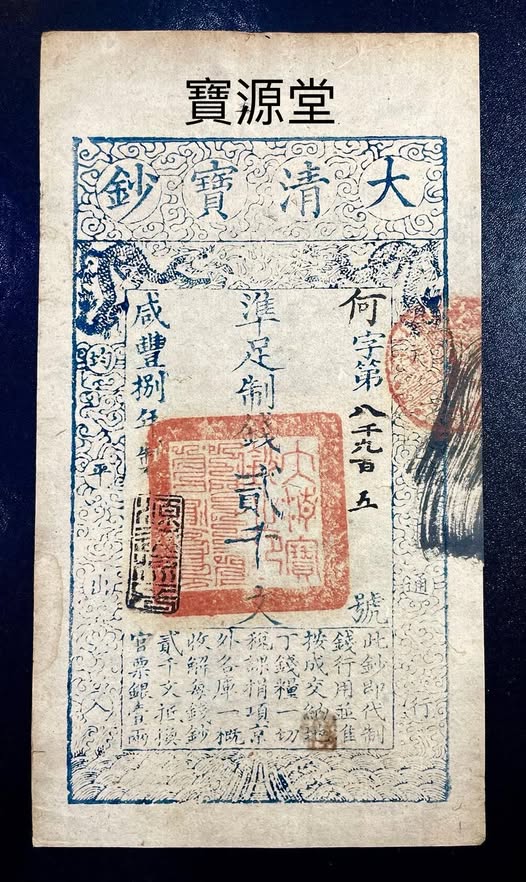 寶源堂
大清寶鈔
何字第八千九百五號
準足制錢貳千文
咸豐捌年製
此鈔即代制
錢行用並準
按成交納地
丁錢糧一切
稅課捐項京
外各庫一概
收解每錢鈔
貳千文抵換
官票銀壹兩
均平出入
通行
大清寶鈔之印